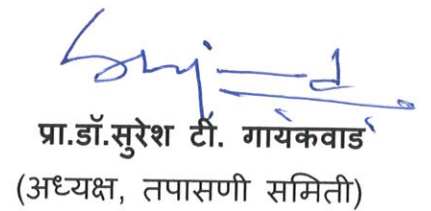 प्रा.डॉ.सुरेश टी. गायकवाड
(अध्यक्ष, तपासणी समिती)